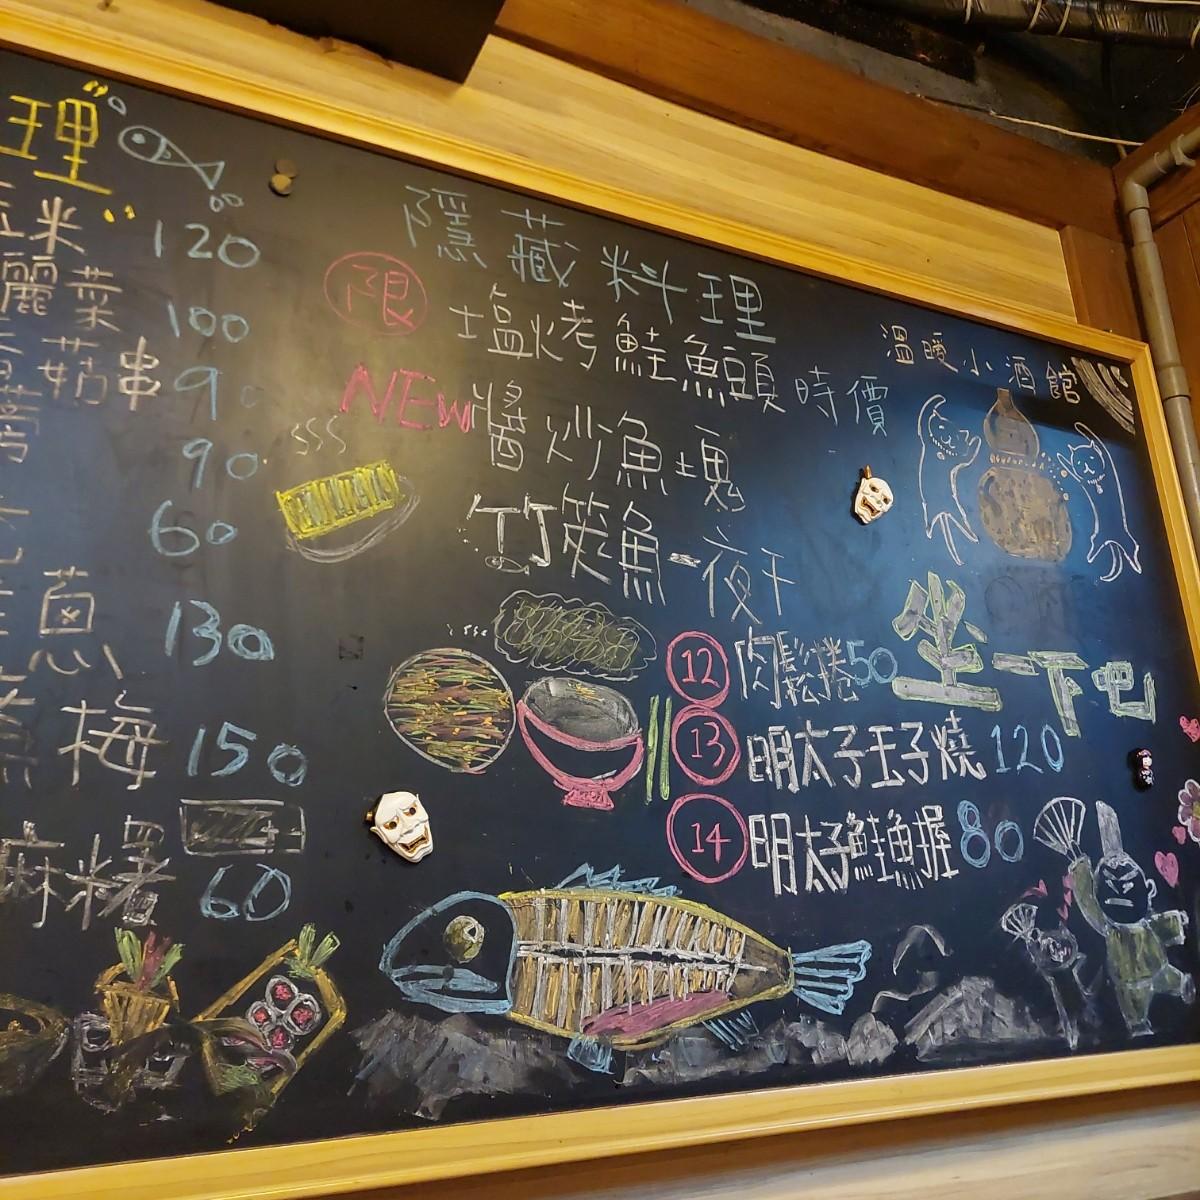 理"
米 120
麗菜 100
菇串 90
90
60
蔥 130
梅 150
麻糬 60
隱藏料理
限 塩烤鮭魚頭 時價
NEW 醬炒魚塊
竹筴魚一夜干
12 肉鬆捲 50
13 明太子玉子燒 120
14 明太子鮭魚握 80
溫暖小酒館
坐一下吧